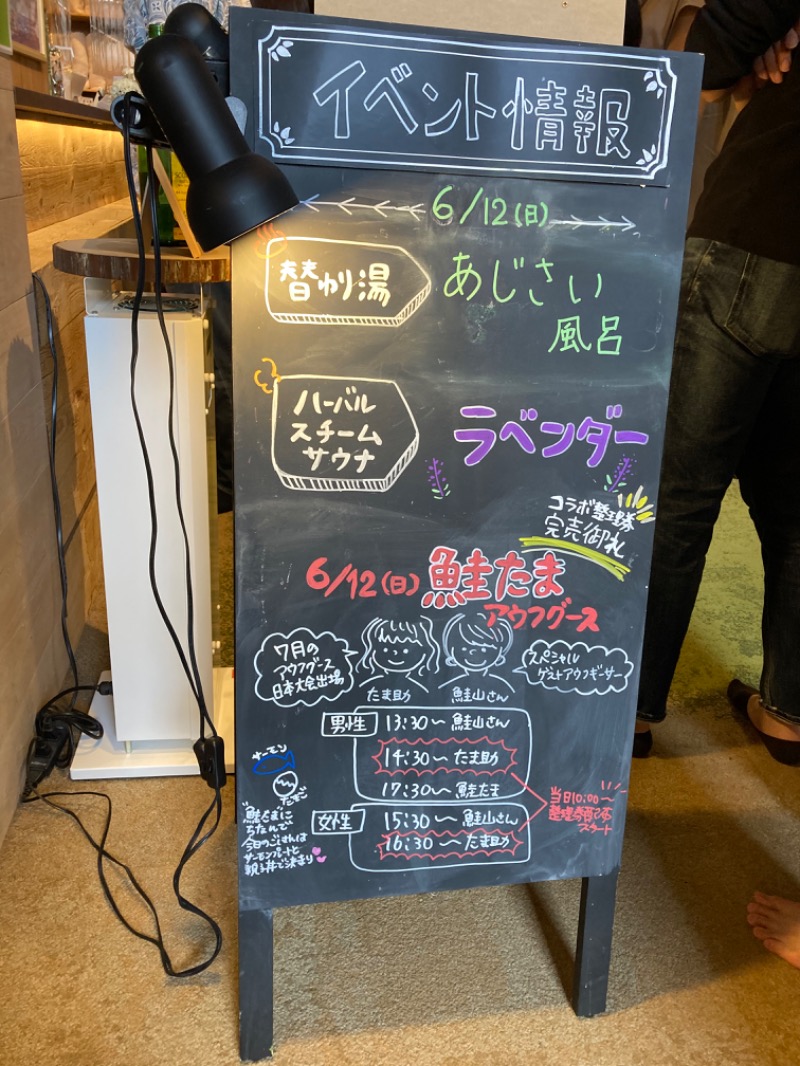 イベント情報
6/12(日)
替わり湯
あじさい
風呂
ハーバル
スチーム
サウナ
ラベンダー
コラボ整理券
完売御礼
6/12(日) 鮭たま
アウフグース
7月の
アウフグース
日本大会出場
スペシャル
ゲストアウフギーサー
たま助
鮭山さん
男性 13:30〜 鮭山さん
14:30〜 たま助
17:30〜 鮭たま
女性 15:30〜 鮭山さん
16:30〜 たま助
当日10:00〜
整理券配布
スタート
サーモン
たまご
"鮭たまに
ちなんで
今日のごはんは
サーモンプレートと
親子丼で決まり